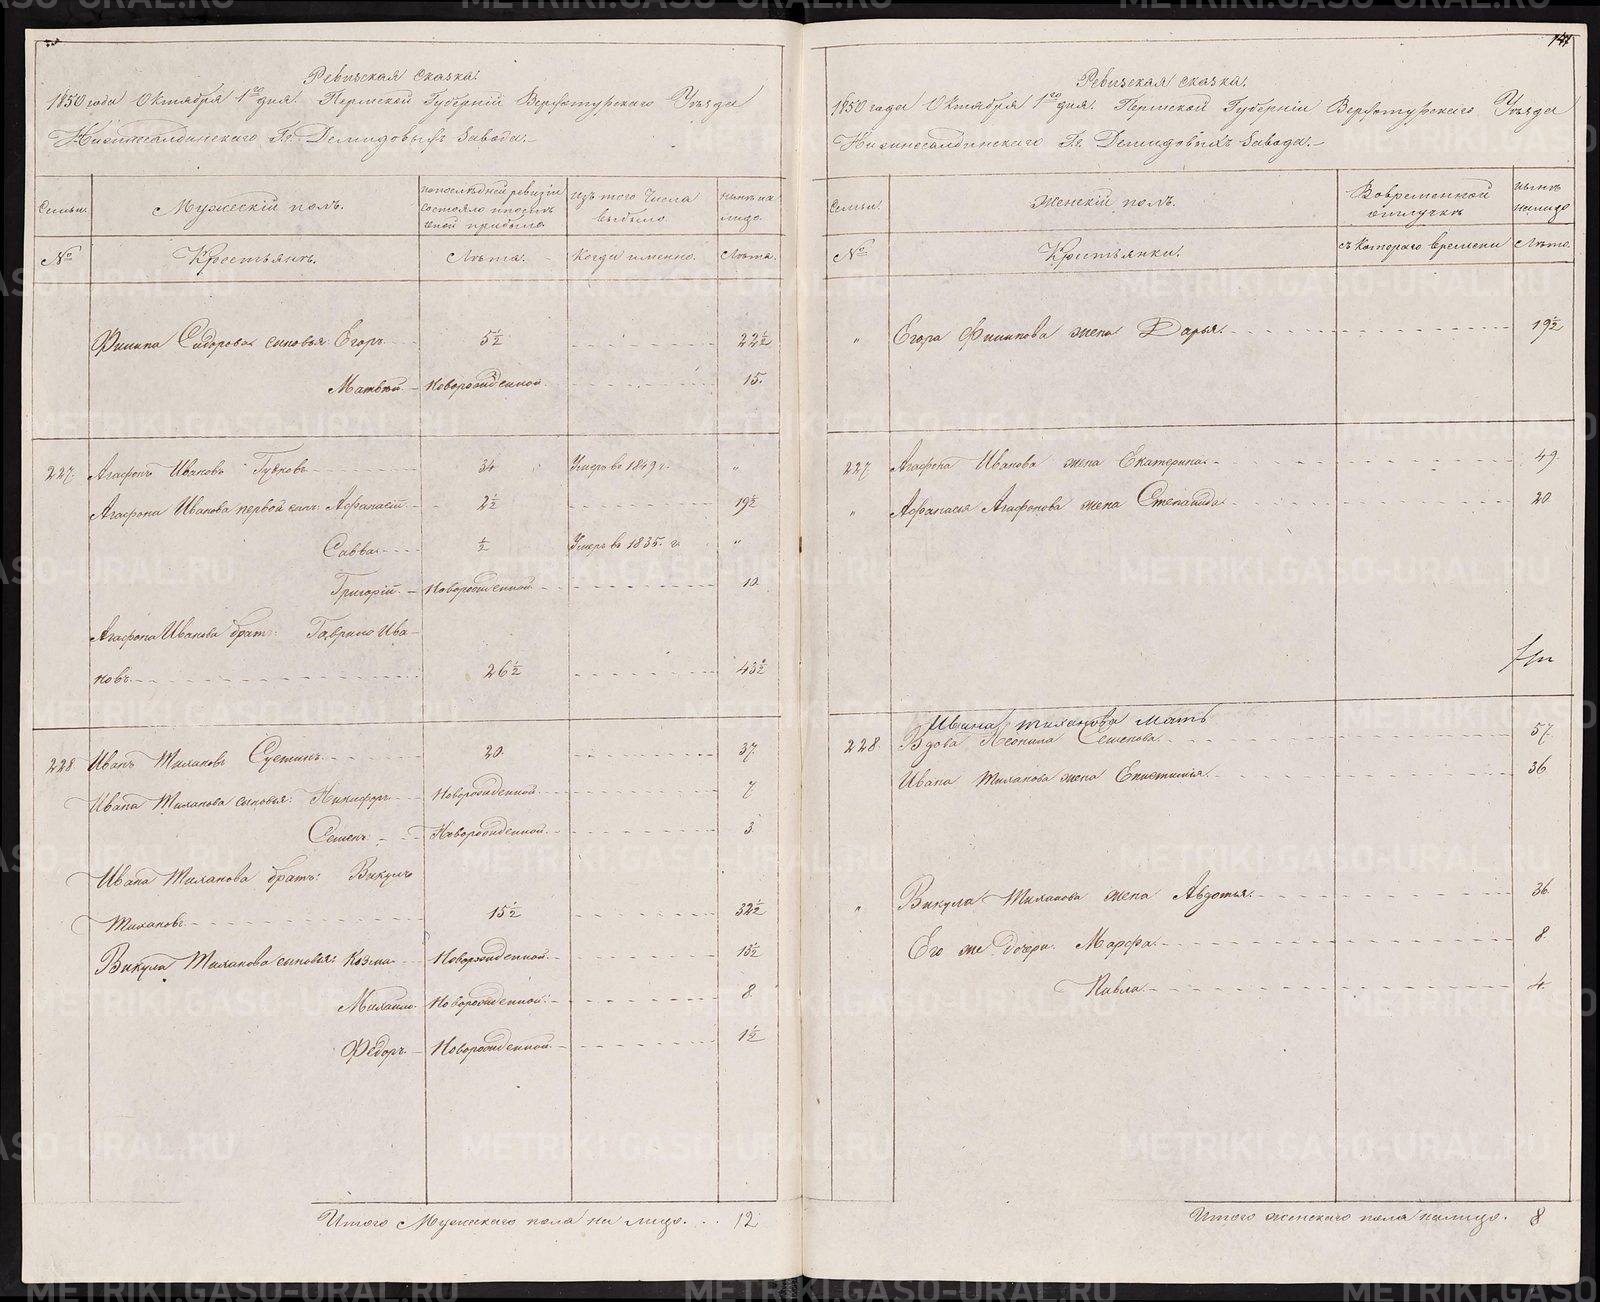 141
Ревизская сказка.
1850 года Октября 1го дня. Пермской Губерніи Верхотурского Уезда
Нижнесалдинскаго Гг. Демидовыхъ Завода.
Семьи.
Мужескій полъ.
по последней ревизіи состояло и после оной прибыло
Изъ того Числа выбыло.
ныне на лицо.
№
Крестьяне.
Лета.
Когда именно.
Лета.
Филипа Сидорова сыновья: Егоръ 5½ 22½
Матвей. Новорожденной. 15.
227. Агафонъ Ивановъ Гужовъ 34 Умеръ въ 1849 г. "
Агафона Иванова первой сынъ: Афанасій 2½ 19½
Савва ½ Умеръ въ 1835. г. "
Григорій. Новорожденной 10.
Агафона Иванова братъ: Гаврило Ива-
новъ. 26½ 43½
228 Иванъ Тихановъ Суетинъ 20. 37.
Ивана Тиханова сыновья: Никифоръ Новорожденной 7
Семенъ. Новорожденной. 3.
Ивана Тиханова братъ: Викула
Тихановъ. 15½ 32½
Викула Тиханова сыновья: Козма Новорожденной. 13½
Михаило Новорожденной. 8.
Федоръ. Новорожденной. 1½
Итого Мужескаго пола на лицо. 12
Ревизская сказка.
1850 года Октября 1го дня. Пермской Губерніи Верхотурскаго Уезда
Нижнесалдинскаго Гг. Демидовыхъ Завода.
Семьи.
Женскій полъ.
Во временной отлучке
ныне налицо
№
Крестьянки.
съ Котораго времени
Лета.
" Егора Филипова жена Дарья. 19½
227. Агафона Иванова жена Екатерина. 49.
" Афанасья Агафонова жена Степанида. 20
Ивана Тиханова мать
228. Вдова Неонила Семенова. 57.
Ивана Тиханова жена Епистимія. 36
" Викула Тиханова жена Авдотья. 36.
Его же дочери: Марфа. 8.
Павла. 4.
Итого женскаго пола налицо. 8
METRIKI.GASO-URAL.RU